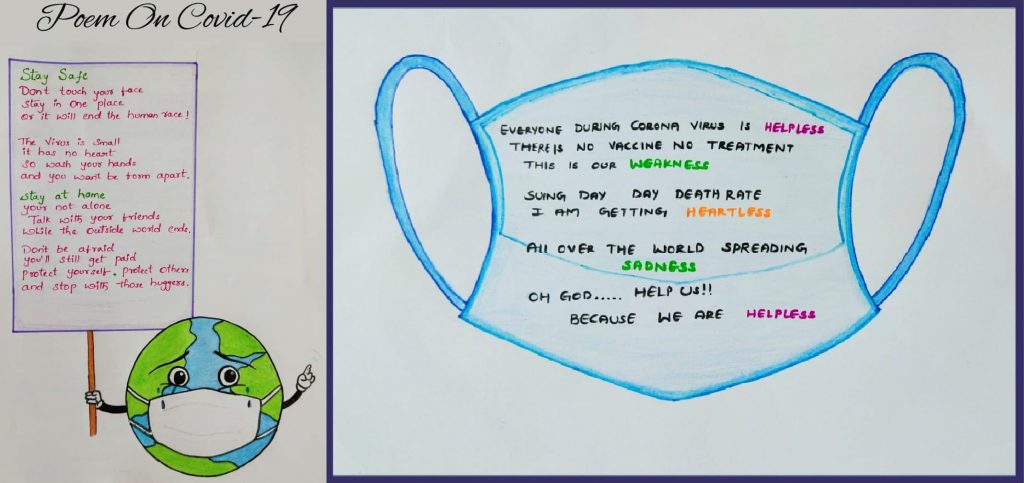 Poem On Covid-19
Stay Safe
Don't touch your face
stay in one place
or it will end the human race!
The virus is small
it has no heart
so wash your hands
and you won't be torm apart.
stay at home
your not alone
Talk with your friends
while the outside world ends.
Don't be afraid
you'll still get paid
protect yourself. protect others
and stop with those huggers.
EVERYONE DURING CORONA VIRUS IS HELPLESS
THERE IS NO VACCINE NO TREATMENT
THIS IS OUR WEAKNESS
SUING DAY DAY DEATH RATE
I AM GETTING HEARTLESS
All OVER THE WORLD SPREADING
SADNESS
OH GOD..... HELP US!!
BECAUSE WE ARE HELPLESS